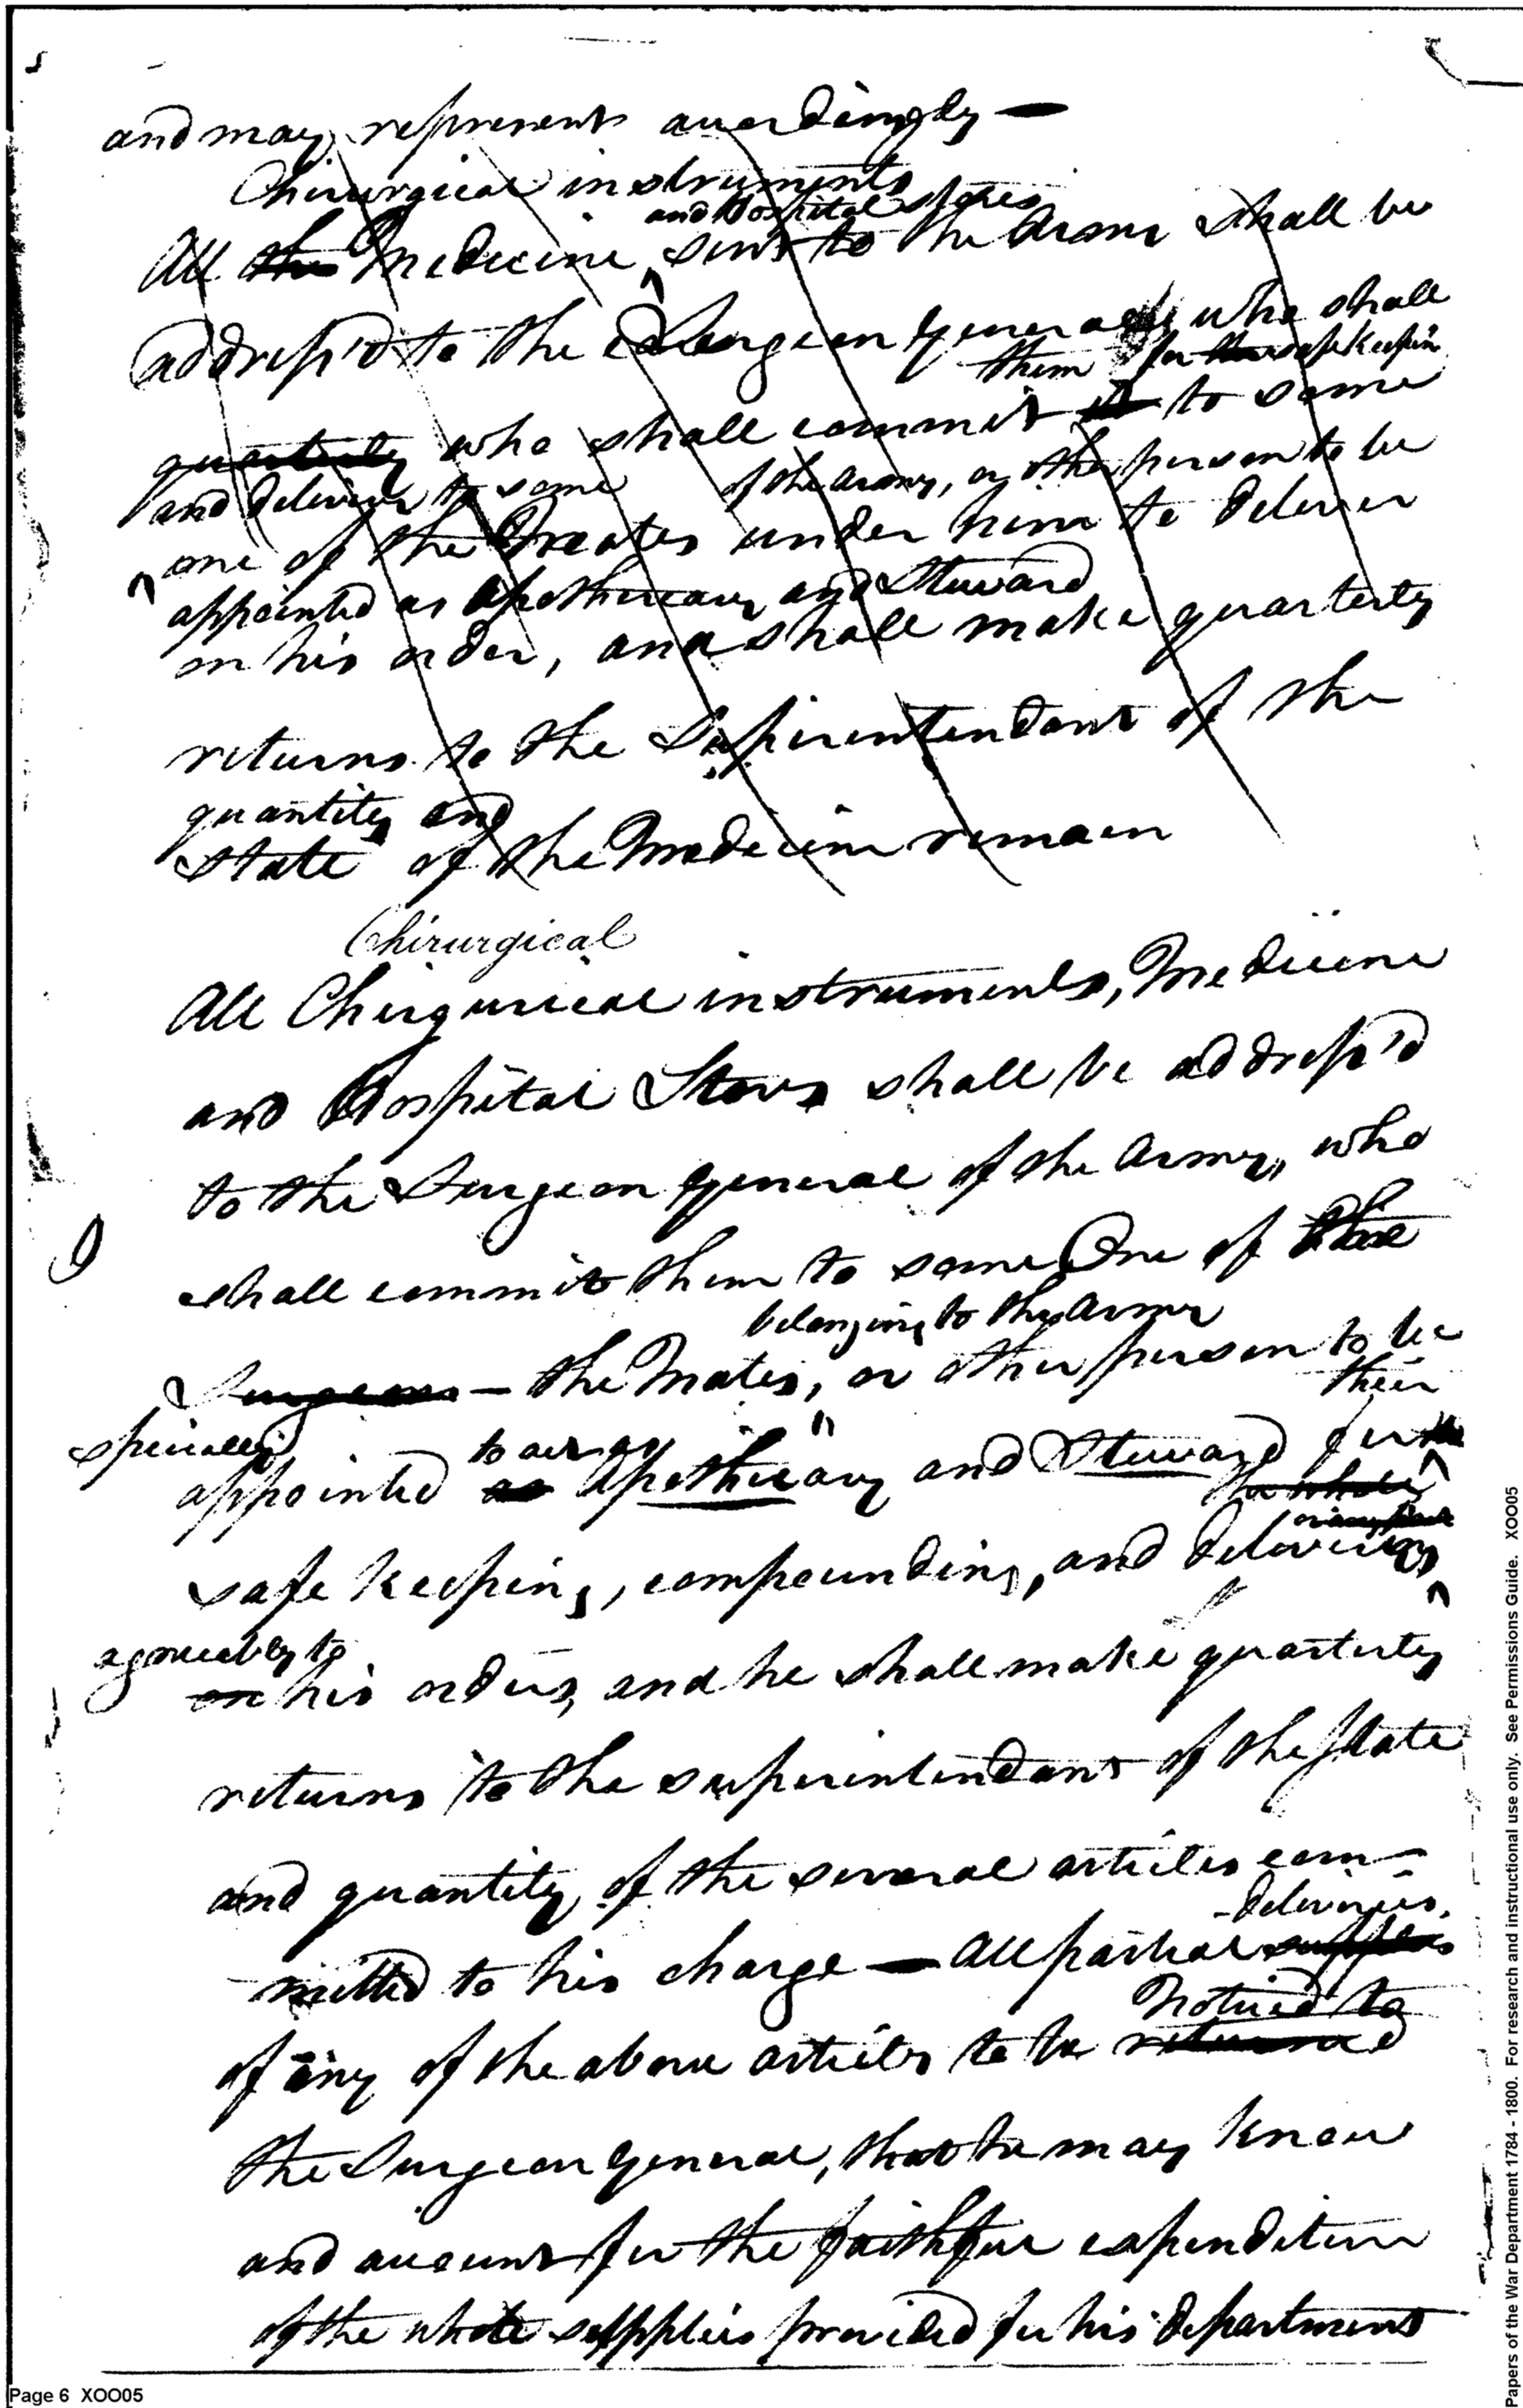 and may represent accordingly —
Chirurgical instruments
and Hospital stores
All the Medicine sent to the Army shall be
address'd to the Surgeon General who shall
them for safe keeping
quarterly who shall commit it to some
and deliver to some of the Army, or other person to be
one of the Mates under him to deliver
appointed as Apothecary and Steward
on his order, and shall make quarterly
returns to the Superintendant of the
quantity and
state of the Medicine remain
Chirurgical
All Chirgurical instruments, Medicine
and Hospital Stores shall be address'd
to the Surgeon General of the Army, who
shall commit them to some One of the
belonging to the Army
Surgeons — the Mates, or other person to be
their
specially to act as
appointed as Apothecary and Steward for
the whole
or any part
safe keeping, compounding, and delivering
agreeably to
on his orders, and he shall make quarterly
returns to the superintendant of the state
and quantity of the several articles com-
deliveries
mitted to his charge — All partial supplies
Noticed to
of any of the above articles to be returned
the Surgeon General, that he may know
and account for the faithful expenditure
of the whole supplies provided for his department
Page 6 XOO05
Papers of the War Department 1784 - 1800. For research and instructional use only. See Permissions Guide. XOO05